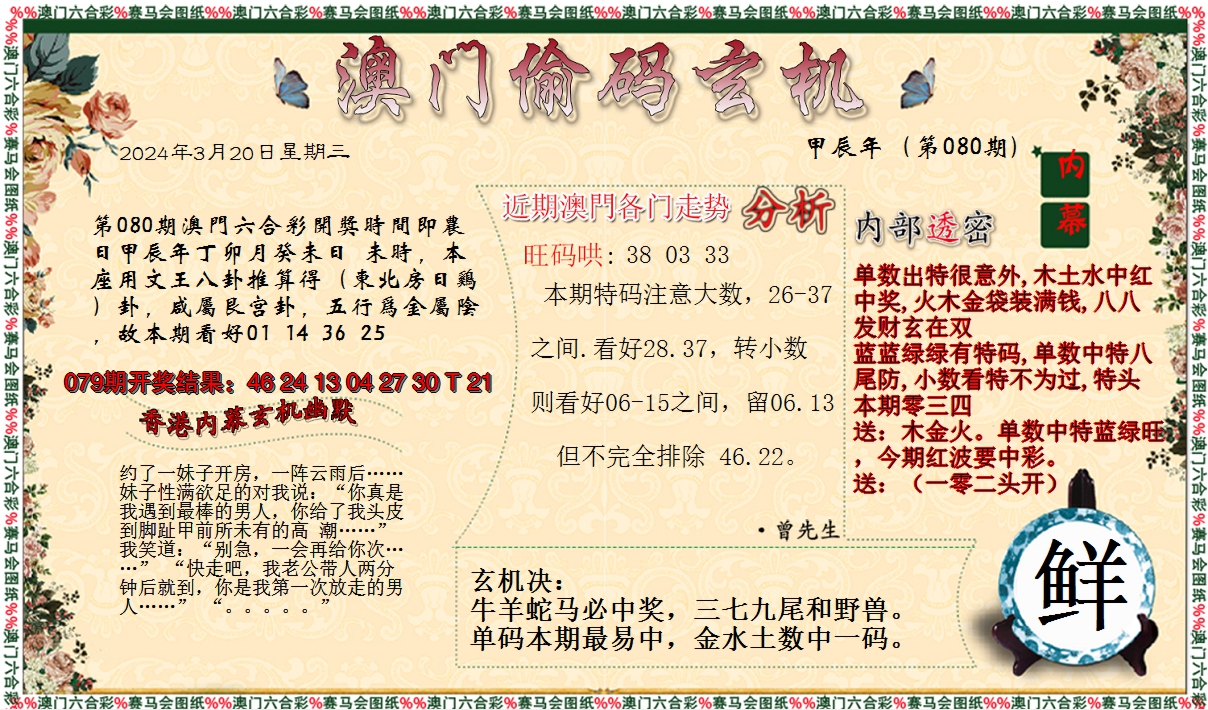 %%澳门六合彩%赛马会图纸%%澳门六合彩%赛马会图纸%%澳门六合彩%赛马会图纸%%澳门六合彩%赛马会图纸%%澳门六合彩%赛马会图纸%%澳门六合彩%赛马会图纸%%
澳门偷码玄机
2024年3月20日星期三
甲辰年（第080期）
内
幕
第080期澳門六合彩開獎時間即農
日甲辰年丁卯月癸未日 未時，本
座用文王八卦推算得（東北房日鷄
）卦，咸屬艮宫卦，五行爲金屬陰
，故本期看好01 14 36 25
079期开奖结果：46 24 13 04 27 30 T 21
香港内幕玄机幽默
约了一妹子开房，一阵云雨后……
妹子性满欲足的对我说：“你真是
我遇到最棒的男人，你给了我头皮
到脚趾甲前所未有的高 潮……”
我笑道：“别急，一会再给你次…
…” “快走吧，我老公带人两分
钟后就到，你是我第一次放走的男
人……” “。。。。。”
近期澳門各门走势 分析
旺码哄: 38 03 33
本期特码注意大数，26-37
之间.看好28.37，转小数
则看好06-15之间，留06.13
但不完全排除 46.22。
·曾先生
内部透密
单数出特很意外,木土水中红
中奖,火木金袋装满钱,八八
发财玄在双
蓝蓝绿绿有特码,单数中特八
尾防,小数看特不为过,特头
本期零三四
送：木金火。单数中特蓝绿旺
，今期红波要中彩。
送：（一零二头开）
玄机决：
牛羊蛇马必中奖，三七九尾和野兽。
单码本期最易中，金水土数中一码。
鲜
%%澳门六合彩%赛马会图纸%%澳门六合彩%赛马会图纸%%澳门六合彩%赛马会图纸%%澳门六合彩%赛马会图纸%%
%%澳门六合彩%赛马会图纸%%澳门六合彩%赛马会图纸%%澳门六合彩%赛马会图纸%%澳门六合彩%赛马会图纸%%
%%澳门六合彩%赛马会图纸%%澳门六合彩%赛马会图纸%%澳门六合彩%赛马会图纸%%澳门六合彩%赛马会图纸%%澳门六合彩%赛马会图纸%%澳门六合彩%赛马会图纸%%